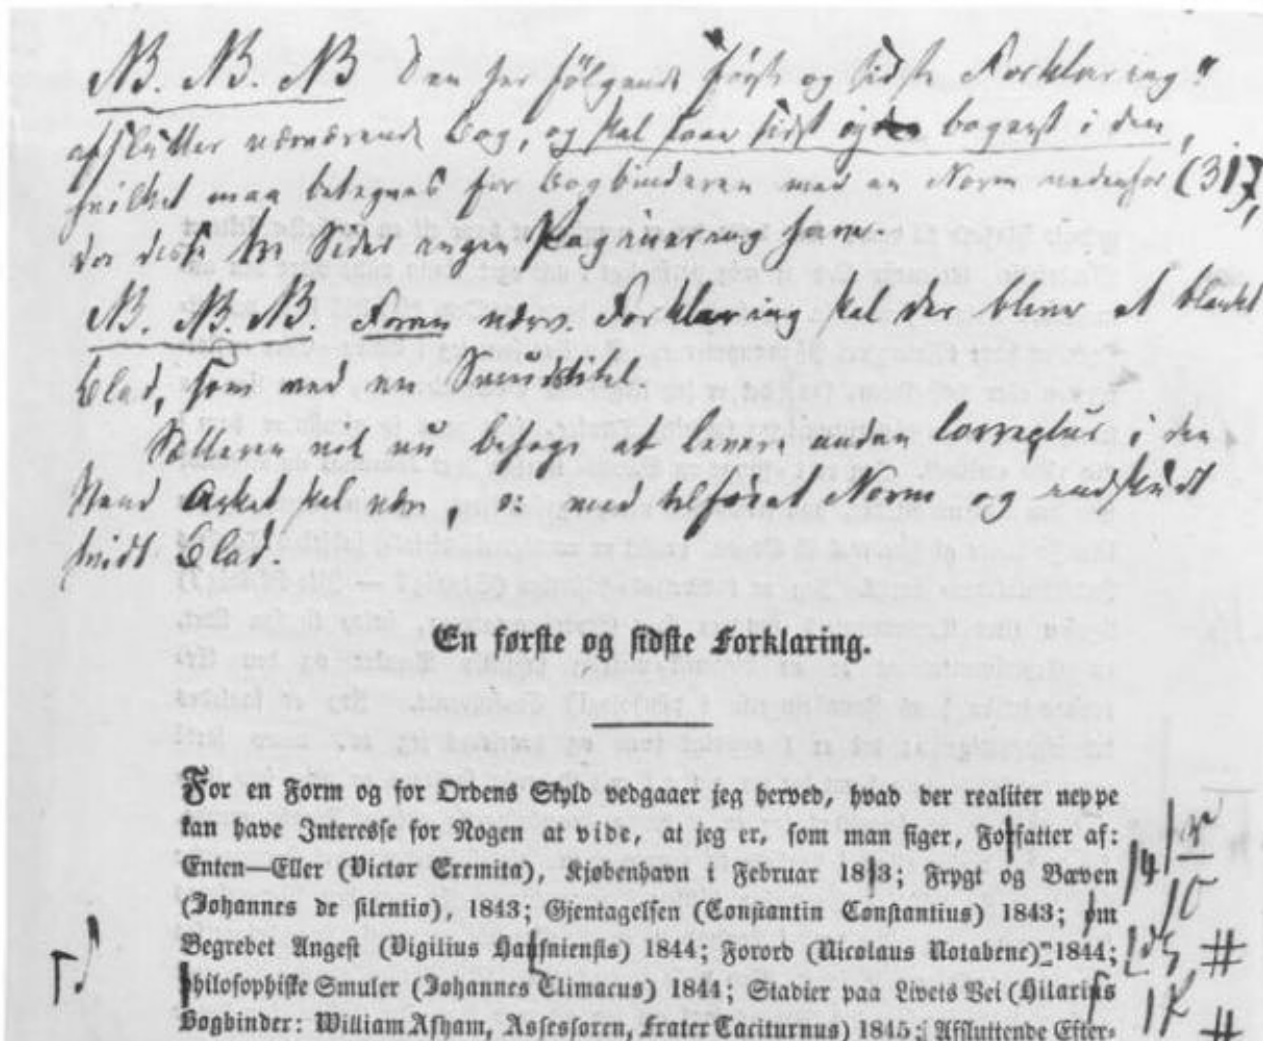 NB. NB. NB Den her følgende "første og sidste Forklaring"
afslutter nærværende Bog, og skal saae sidst og bagerst i den,
hvilket maa betegnes for Bogbinderen med en Norm nedenfor (31),
da disse Sider ingen Paginering have.
NB. NB. NB. Foran nærv. Forklaring skal der blive et blankt
Blad, som med en Smudstitel.
Sætteren vil nu besørge at levere anden Correctur i den
Stand Arket skal være, o: med tilføiet Norm og indskudt
hvidt Blad.
En første og sidste Forklaring.
For en Form og for Ordens Skyld vedgaaer jeg herved, hvad der realiter neppe
kan have Interesse for Nogen at vide, at jeg er, som man siger, Forfatter af:
Enten—Eller (Victor Eremita), Kjøbenhavn i Februar 1813; Frygt og Bæven
(Johannes de silentio), 1843; Gjentagelsen (Constantin Constantius) 1843; om
Begrebet Angest (Vigilius Haufniensis) 1844; Forord (Nicolaus Notabene) 1844;
philosophiske Smuler (Johannes Climacus) 1844; Stadier paa Livets Vei (Hilarius
Bogbinder: William Afham, Assessoren, Frater Taciturnus) 1845; Afsluttende Efter-